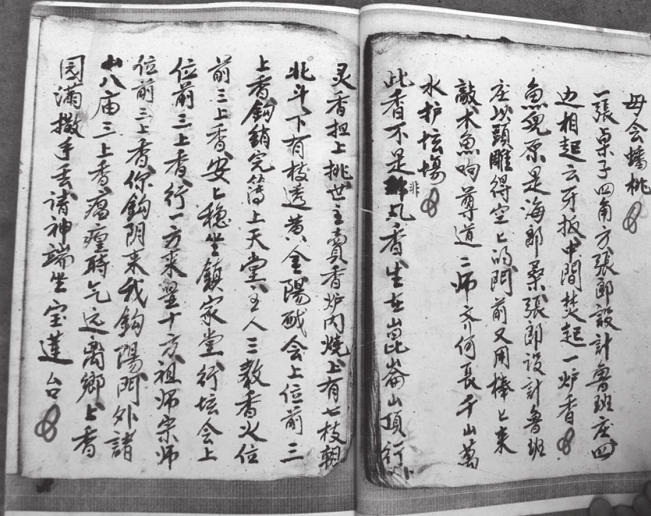 母会蟠桃
一張桌子四角方張郎設計鲁班庄四
边相起云牙板中間焚起一炉香
魚兒原是海郎桑張郎設計鲁班
庄以頭雕得空上的門前又用棒上来
敲木魚响尊道二师文何長千山萬
水护坛場
此香不是非凡香生在崑崙山頂行
灵香担上挑世主賣香炉内燒上有七枝朝
北斗下有枝透黄金陽戒会上位前三
上香鈎銷完簿上天堂五人三教香火位
前三上香安上穩坐鎮家堂行坛会上
位前三上香行一方来望十方祖师宗师
位前三上香你鈎阴来我鈎陽門外諸
八庙三上香瘟癀時气远离鄉上香
园满撒手丢諸神端坐宝蓮台